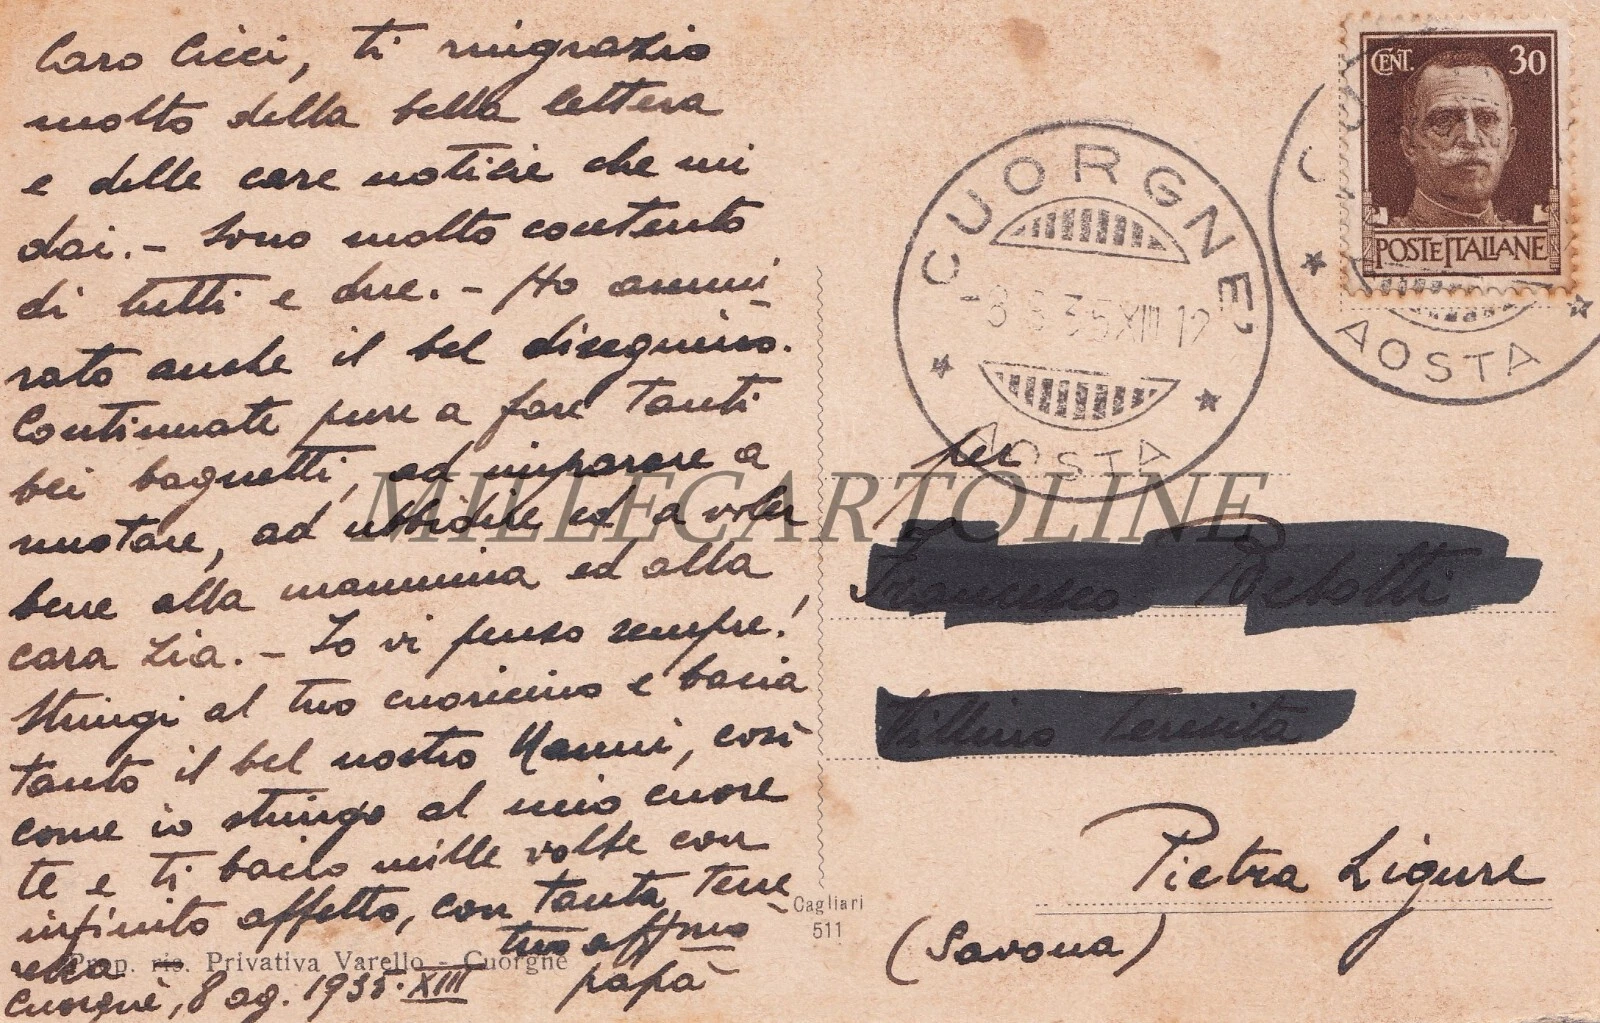 Caro Cicci, ti ringrazio
molto della bella lettera
e delle care notizie che mi
dai. - Sono molto contento
di tutti e due. - Ho ammi-
rato anche il bel disegnino.
Continuate pure a fare tanti
bei bagnetti, ad imparare a
nuotare, ad ubbidire ed a voler
bene alla mammina ed alla
cara zia. - Io vi penso sempre!
Stringi al tuo cuoricino e bacia
tanto il bel nostro Nanni, così
come io stringo al mio cuore
te e ti bacio mille volte con
infinito affetto, con tanta tene-
rezza
tuo aff/mo
papà
Cuorgnè, 8 ag. 1935. XIII
Prop. ris. Privativa Varello - Cuorgnè
Cagliari
511
CENT. 30
POSTE ITALIANE
CUORGNE'
-8.8.35 XIII 12
AOSTA
AOSTA
per
Pietra Ligure
(Savona)
MILLECARTOLINE